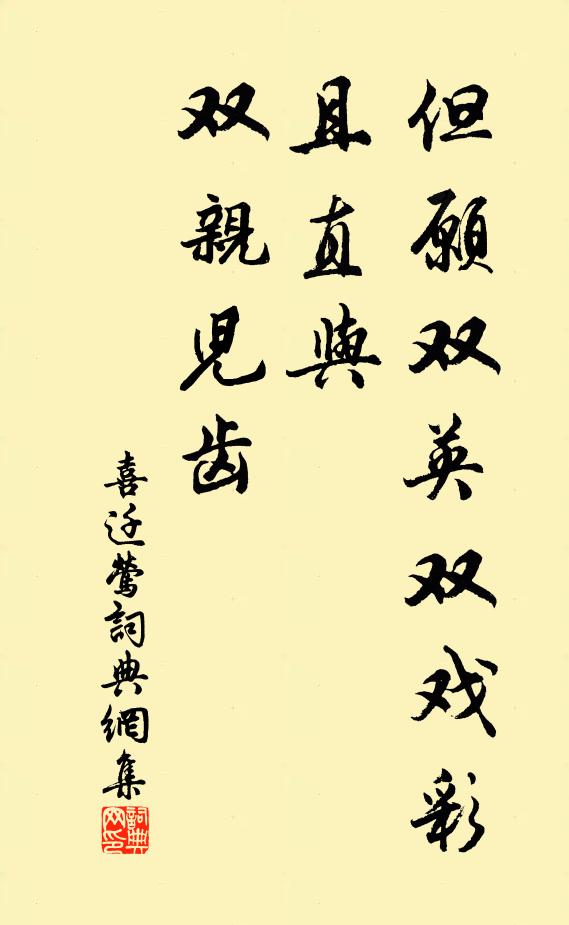 但願双英双戏彩
且直與
双親児齿
喜迁莺詞典網集
詞典网印